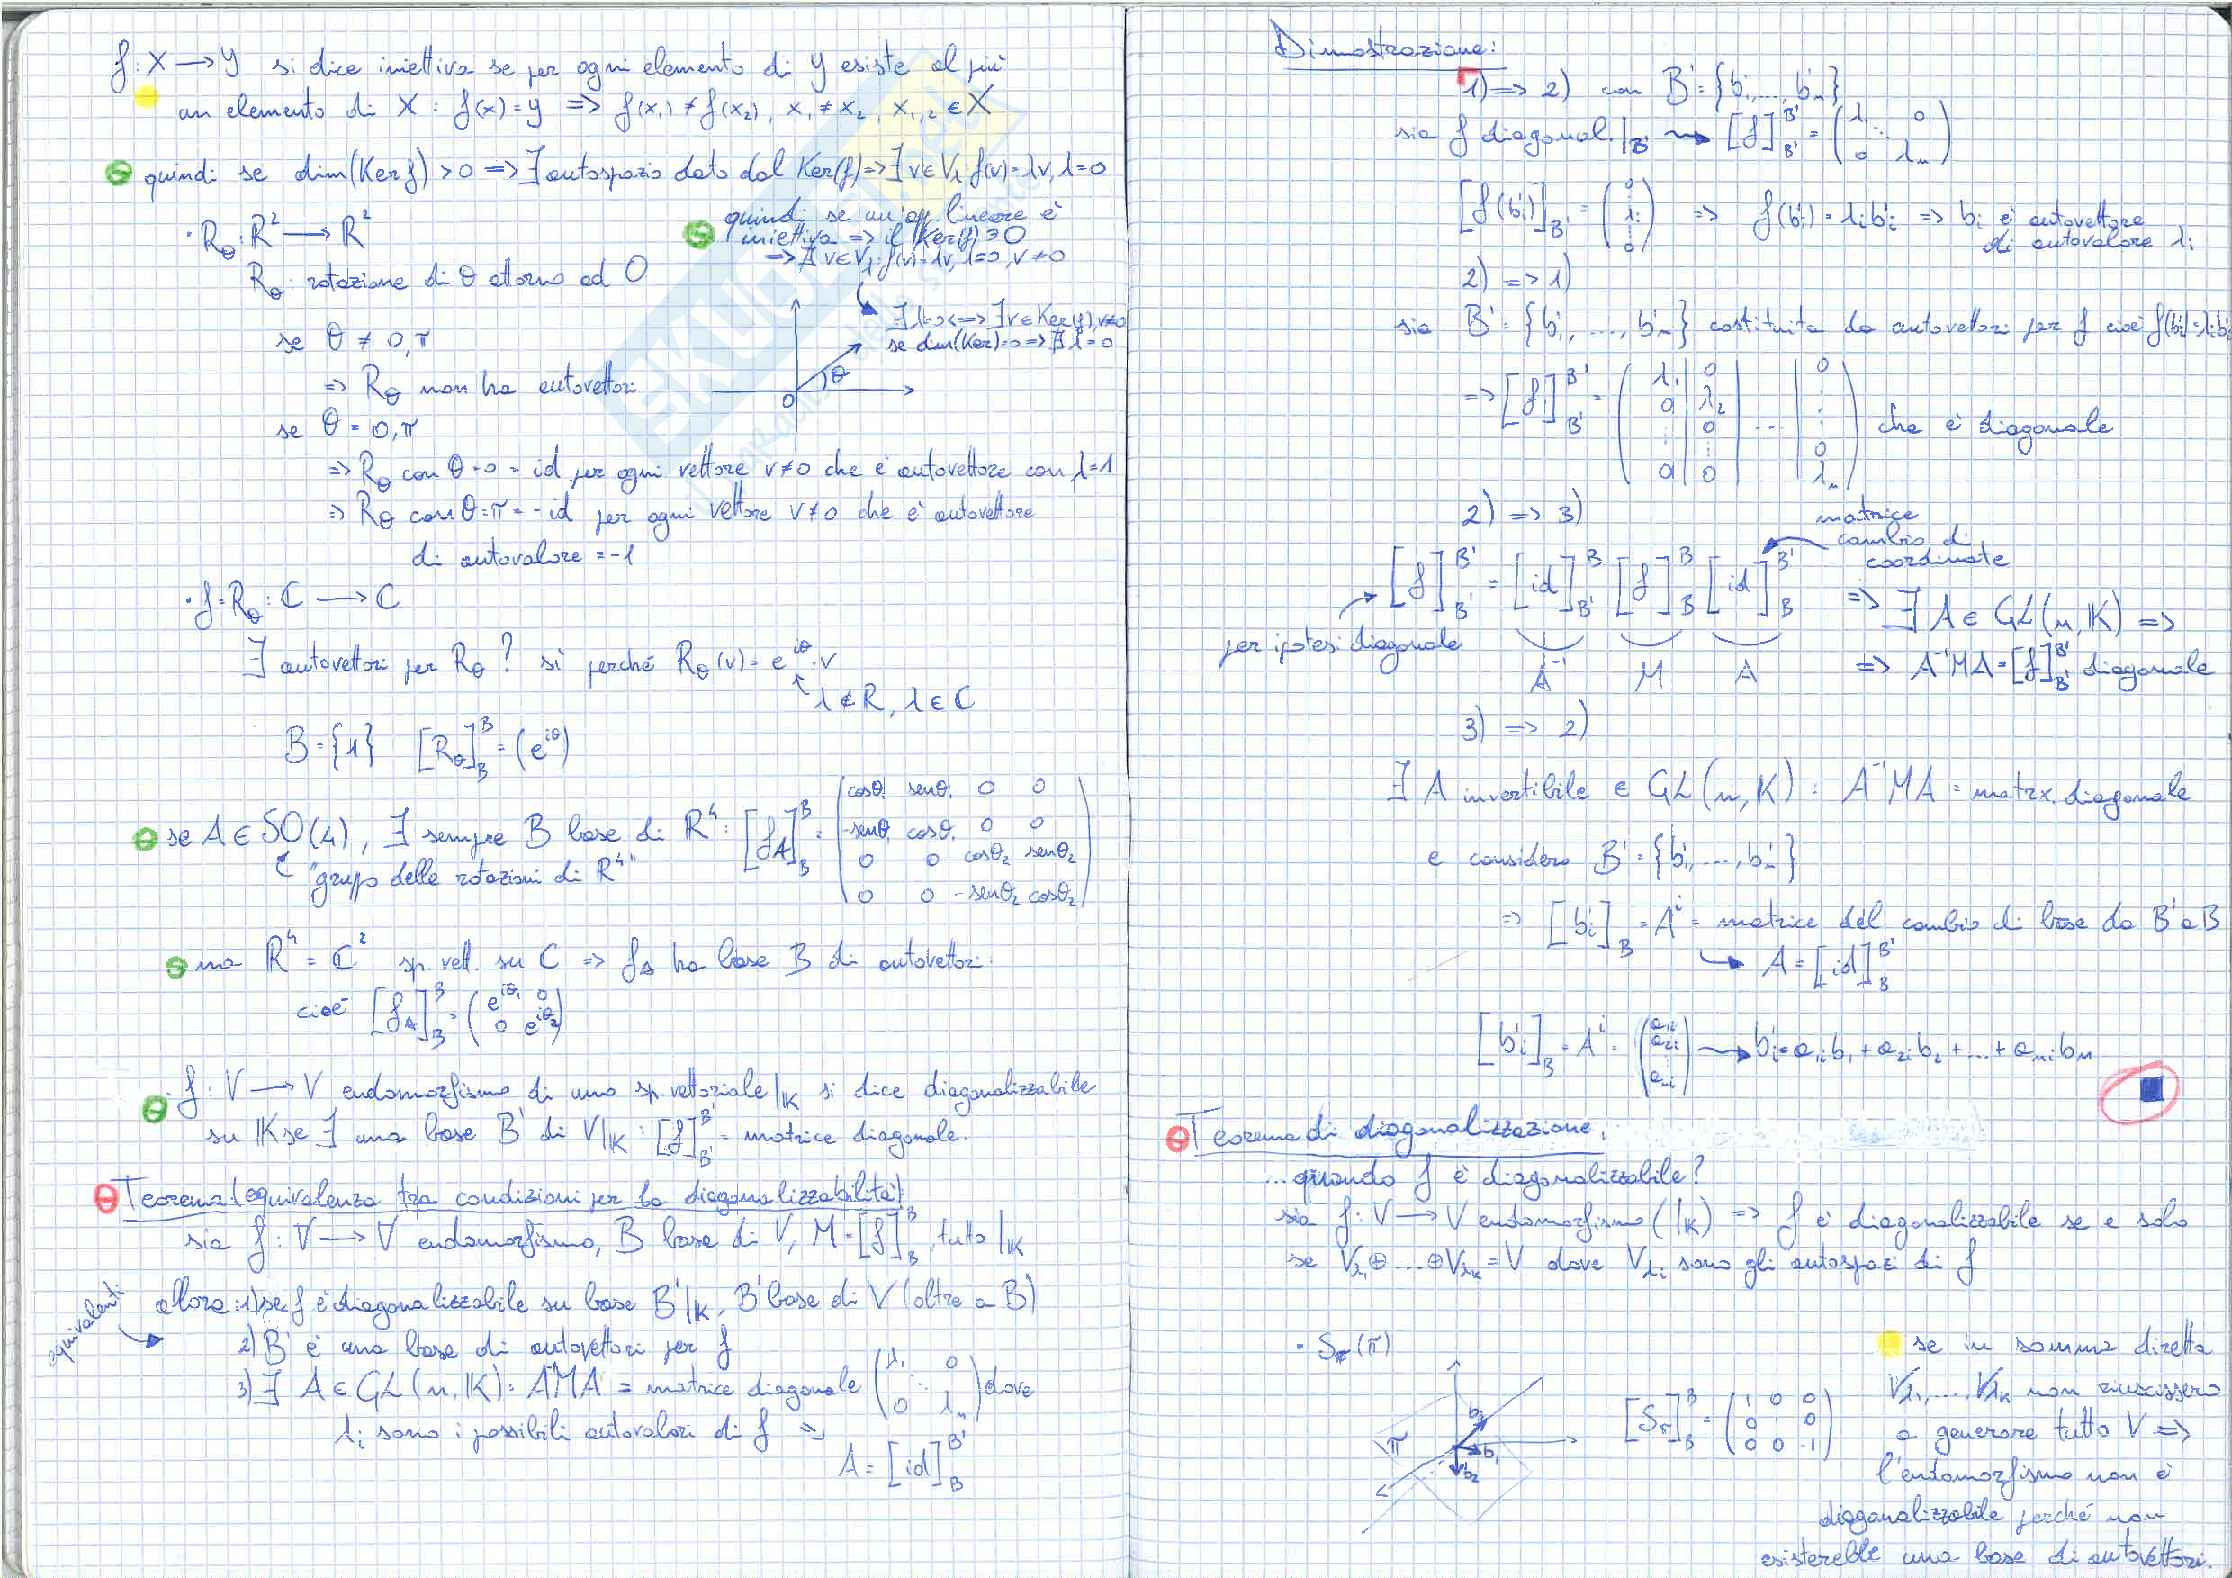 f: X → Y si dice iniettiva se per ogni elemento di Y esiste al più
un elemento di X : f(x) = y => f(x₁) ≠ f(x₂), x₁ ≠ x₂, x₁,₂ ∈ X
quindi se dim(Ker f) > 0 => ∃ autospazio dato dal Ker(f) => ∃ v ∈ V_λ: f(v) = λv, λ = 0
quindi se un'op lineare è
iniettiva => il Ker(f) = 0
=> ∄ v ∈ V_λ: f(v) = λv, λ=0, v ≠ 0
∃ λ=0 <=> ∃ v ∈ Ker(f), v≠0
se dim(Ker)=0 => ∄ λ = 0
· R_θ: R² → R²
R_θ: rotazione di θ attorno ad O
se θ ≠ 0, π
=> R_θ non ha autovettori
θ
O
se θ = 0, π
=> R_θ con θ = 0 = id per ogni vettore v≠0 che è autovettore con λ=1
=> R_θ con θ = π = -id per ogni vettore v≠0 che è autovettore
di autovalore = -1
· f = R_θ: C → C
∃ autovettori per R_θ? sì perché R_θ(v) = e^{iθ}·v
λ ∉ R, λ ∈ C
B = {1} [R_θ]_B^B = (e^{iθ})
se A ∈ SO(4), ∃ sempre B base di R⁴: [f_A]_B^B =
cosθ₁ senθ₁ 0 0
-senθ₁ cosθ₁ 0 0
0 0 cosθ₂ senθ₂
0 0 -senθ₂ cosθ₂
"grupo delle rotazioni di R⁴"
ma R⁴ = C² sp. vett. su C => f_A ha base B di autovettori
cioè [f_A]_B^B = (e^{iθ₁} 0
0 e^{iθ₂})
· f: V → V endomorfismo di uno sp. vettoriale|_K si dice diagonalizzabile
su K se ∃ una base B' di V|_K : [f]_{B'}^{B'} = matrice diagonale.
Teorema (equivalenza tra condizioni per la diagonalizzabilità)
sia f: V → V endomorfismo, B base di V, M = [f]_B^B, tutto |_K
equivalenti
allora: 1) se f è diagonalizzabile su base B'|_K, B' base di V (oltre a B)
2) B' è una base di autovettori per f
3) ∃ A ∈ GL(n, K): A⁻¹MA = matrice diagonale (λ₁ 0 ⋱ 0 λ_n) dove
λ_i sono i possibili autovalori di f =>
A = [id]_B^{B'}
Dimostrazione:
1) => 2) con B' = {b'₁, ..., b'_n}
sia f diagonal.|_{B'} → [f]_{B'}^{B'} = (λ₁ 0 ⋱ 0 λ_n)
[f(b'_i)]_{B'} = (0 ⋮ λ_i ⋮ 0) => f(b'_i) = λ_i b'_i => b_i è autovettore
di autovalore λ_i
2) => 1)
sia B' = {b'₁, ..., b'_n} costituita da autovettori per f cioè f(b'_i) = λ_i b'_i
=> [f]_{B'}^{B'} =
λ₁ 0 0
0 λ₂ ⋮
⋮ 0 ... ⋮
⋮ ⋮ 0
0 0 λ_n
che è diagonale
2) => 3)
matrice
cambio di
coordinate
[f]_{B'}^{B'} = [id]_{B'}^B [f]_B^B [id]_B^{B'} => ∃ A ∈ GL(n, K) =>
per ipotesi diagonale
A⁻¹ M A => A⁻¹MA = [f]_{B'}^{B'} diagonale
3) => 2)
∃ A invertibile ∈ GL(n, K) : A⁻¹MA = matrx. diagonale
e considero B' = {b'₁, ..., b'_n}
=> [b'_i]_B = A^i = matrice del cambio di base da B' a B
A = [id]_B^{B'}
[b'_i]_B = A^i = (a₁ᵢ a₂ᵢ ⋮ aₙᵢ) → b'_i = a₁ᵢb₁ + a₂ᵢb₂ + ... + aₙᵢbₙ
Teorema di diagonalizzazione.
... quando f è diagonalizzabile?
sia f: V → V endomorfismo (|_K) => f è diagonalizzabile se e solo
se V_{λ₁} ⊕ ... ⊕ V_{λ_k} = V dove V_{λ_i} sono gli autospazi di f
· S_π (π)
π
b₁
b₂
[S_π]_B^B =
1 0 0
0 1 0
0 0 -1
se in somma diretta
V_{λ₁}, ..., V_{λ_k} non riuscissero
a generare tutto V =>
l'endomorfismo non è
diagonalizzabile perché non
esisterebbe una base di autovettori.